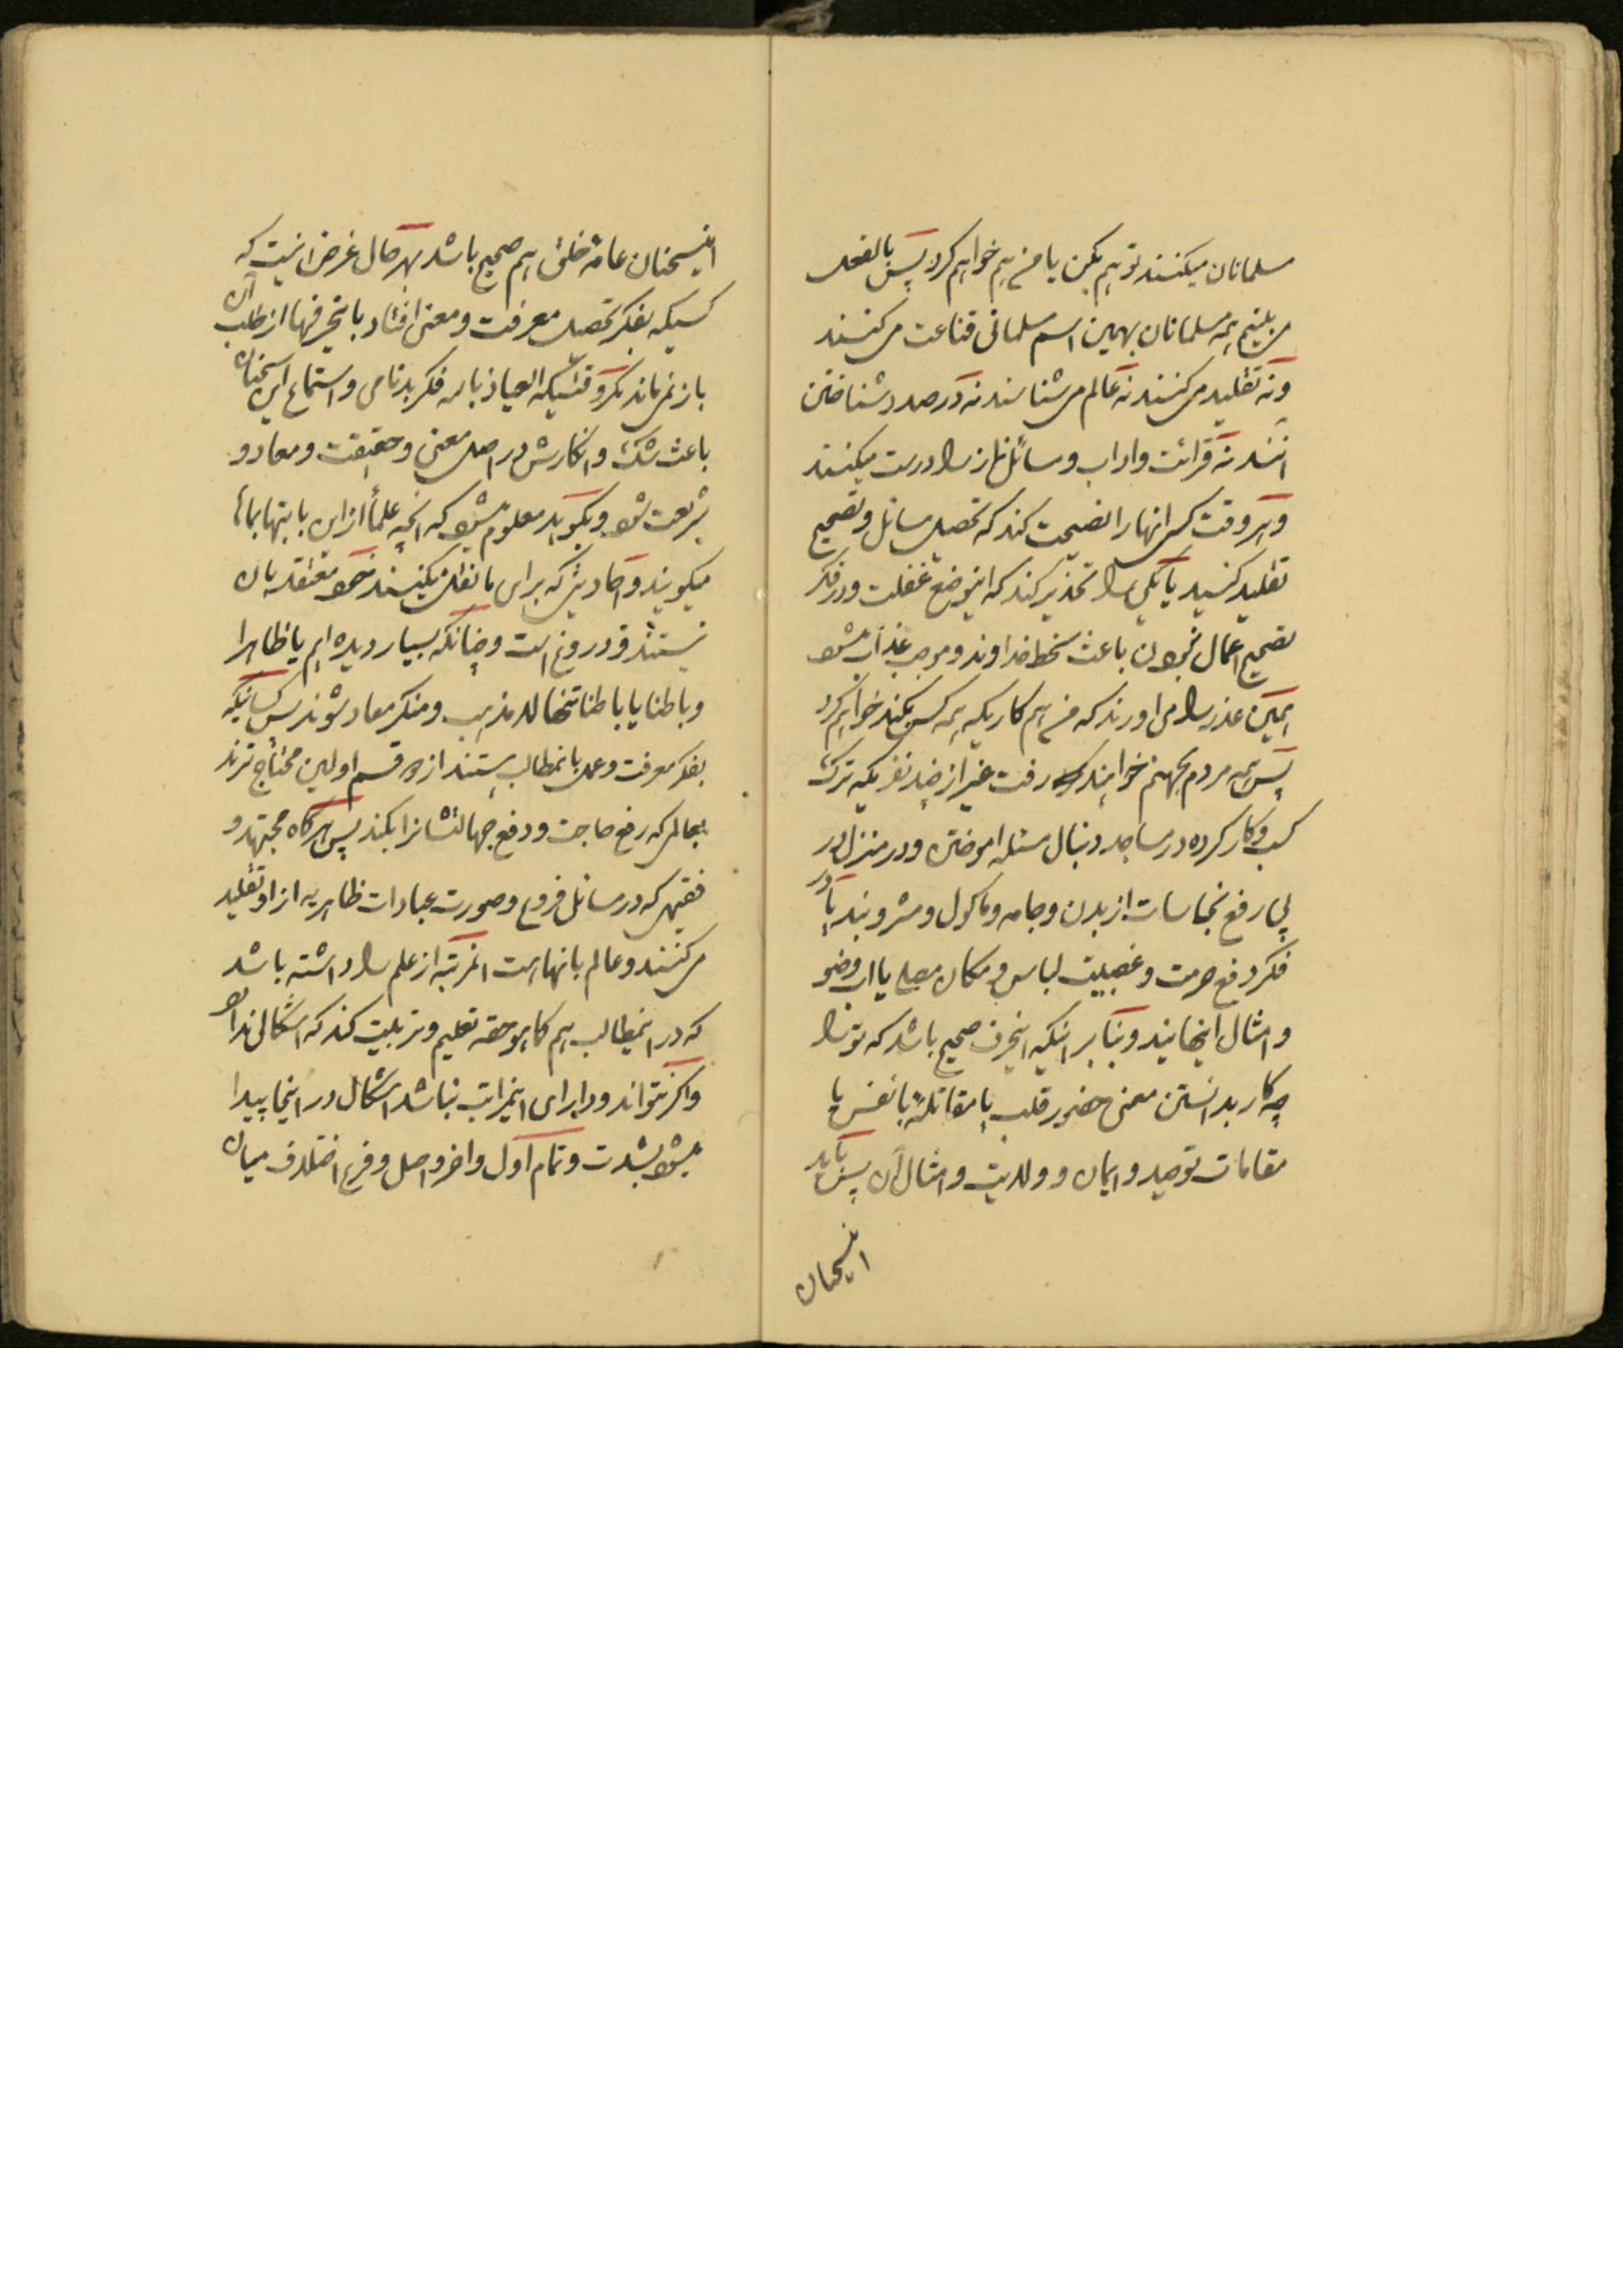 مسلمانان میکنند تو هم بکن یا من هم خواهم کرد پس بالفعل
می بینیم همه مسلمانان بهمین اسم مسلمانی قناعت می کنند
و نه تقلید می کنند نه عالم می شناسند نه در صدد شناختن
انند نه قرائت و اداب و مسائل نماز را درست میکنند
و هر وقت کسی انها را نصیحت کند که تحصیل مسائل و تصحیح
تقلید کنید یا یکی را تحذیر کند که اینوضع غفلت و در فکر
تصحیح اعمال نبودن باعث سخط خداوند و موجب عذاب میشود
همین عذر را می اورند که من هم کاریکه همه کس بکند خواهم کرد
پس همه مردم بجهنم خواهند رفت غیر از چند نفریکه ترک
کسب و کار کرده در مساجد دنبال مسئله اموختن و در منزل در
پی رفع نجاسات از بدن و جامه و ماکول و مشروبند یا در
فکر دفع حرمت و غصبیت لباس و مکان مصلی یا اب وضو
و امثال اینهایند و بنا بر اینکه اینحرف صحیح باشد که تو را
چه کار بدانستن معنی حضور قلب یا مقاتله با نفس یا
مقامات توحید و ایمان و ولایت و امثال آن پس باید
اینسخنان
اینسخنان عامه خلق هم صحیح باشد بهر حال غرض اینست که
کسیکه بفکر تحصیل معرفت و معنی افتاد باینحرفها از طلب آن
باز نمی ماند مگر وقتیکه العیاذ بالله فکر بدنامی و استماع این سخنان
باعث شک و انکارش در اصل معنی و حقیقت و معاد و
شریعت شود و بگوید معلوم میشود که انچه علما از این بابتها بما
میکویند و احادیثی که برای ما نقل میکنند خود معتقد بان
نیستند و دروغ است و چنانکه بسیار دیده ایم یا ظاهرا
و باطنا یا باطنا تنها لامذهب و منکر معاد شوند پس کسانیکه
بفکر معرفت و عمل بانمطالب هستند از قسم اولین محتاج ترند
بعالمی که رفع حاجت و دفع جهالتشانرا بکند پس هرگاه مجتهد و
فقیهی که در مسائل فروع و صورت عبادات ظاهریه از او تقلید
می کنند و عالم بانهاست انمرتبه از علم را داشته باشد
که در انمطالب هم کما هو حقه تعلیم و تربیت کند که اشکالی ندارد
و اگر نتواند و دارای اینمراتب نباشد اشکال در اینجا پیدا
میشود بشدت و تمام اول و اخر و اصل و فرع اختلاف میان